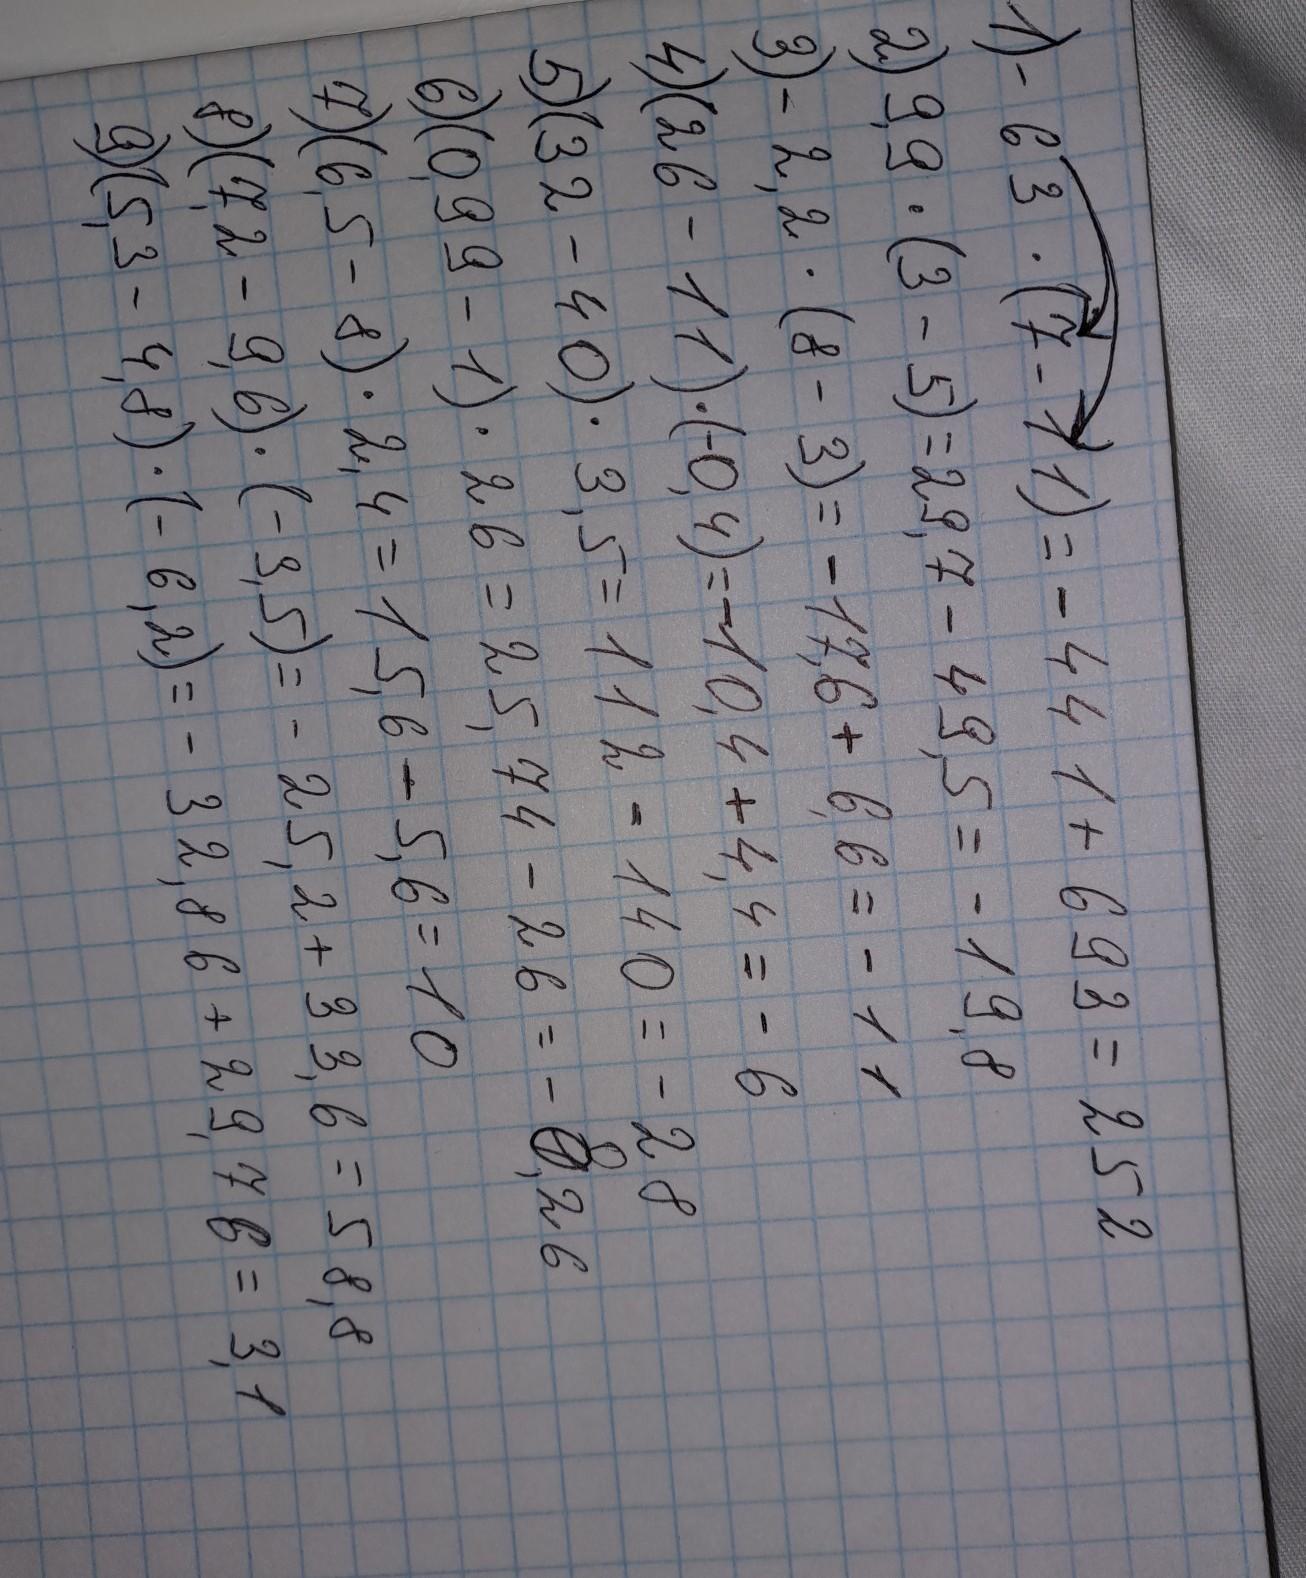 1) - 63 · (7 - 11) = - 441 + 693 = 252
2) 9,9 · (3 - 5) = 29,7 - 49,5 = - 19,8
3) - 2,2 · (8 - 3) = - 17,6 + 6,6 = - 11
4) (26 - 11) · (-0,4) = -10,4 + 4,4 = - 6
5) (32 - 40) · 3,5 = 112 - 140 = - 28
6) (0,99 - 1) · 26 = 25,74 - 26 = - 0,26
7) (6,5 - 8) · 2,4 = 15,6 - 5,6 = 10
8) (7,2 - 9,6) · (-3,5) = - 25,2 + 33,6 = 58,8
9) (5,3 - 4,8) · (- 6,2) = - 32,86 + 29,76 = 3,1